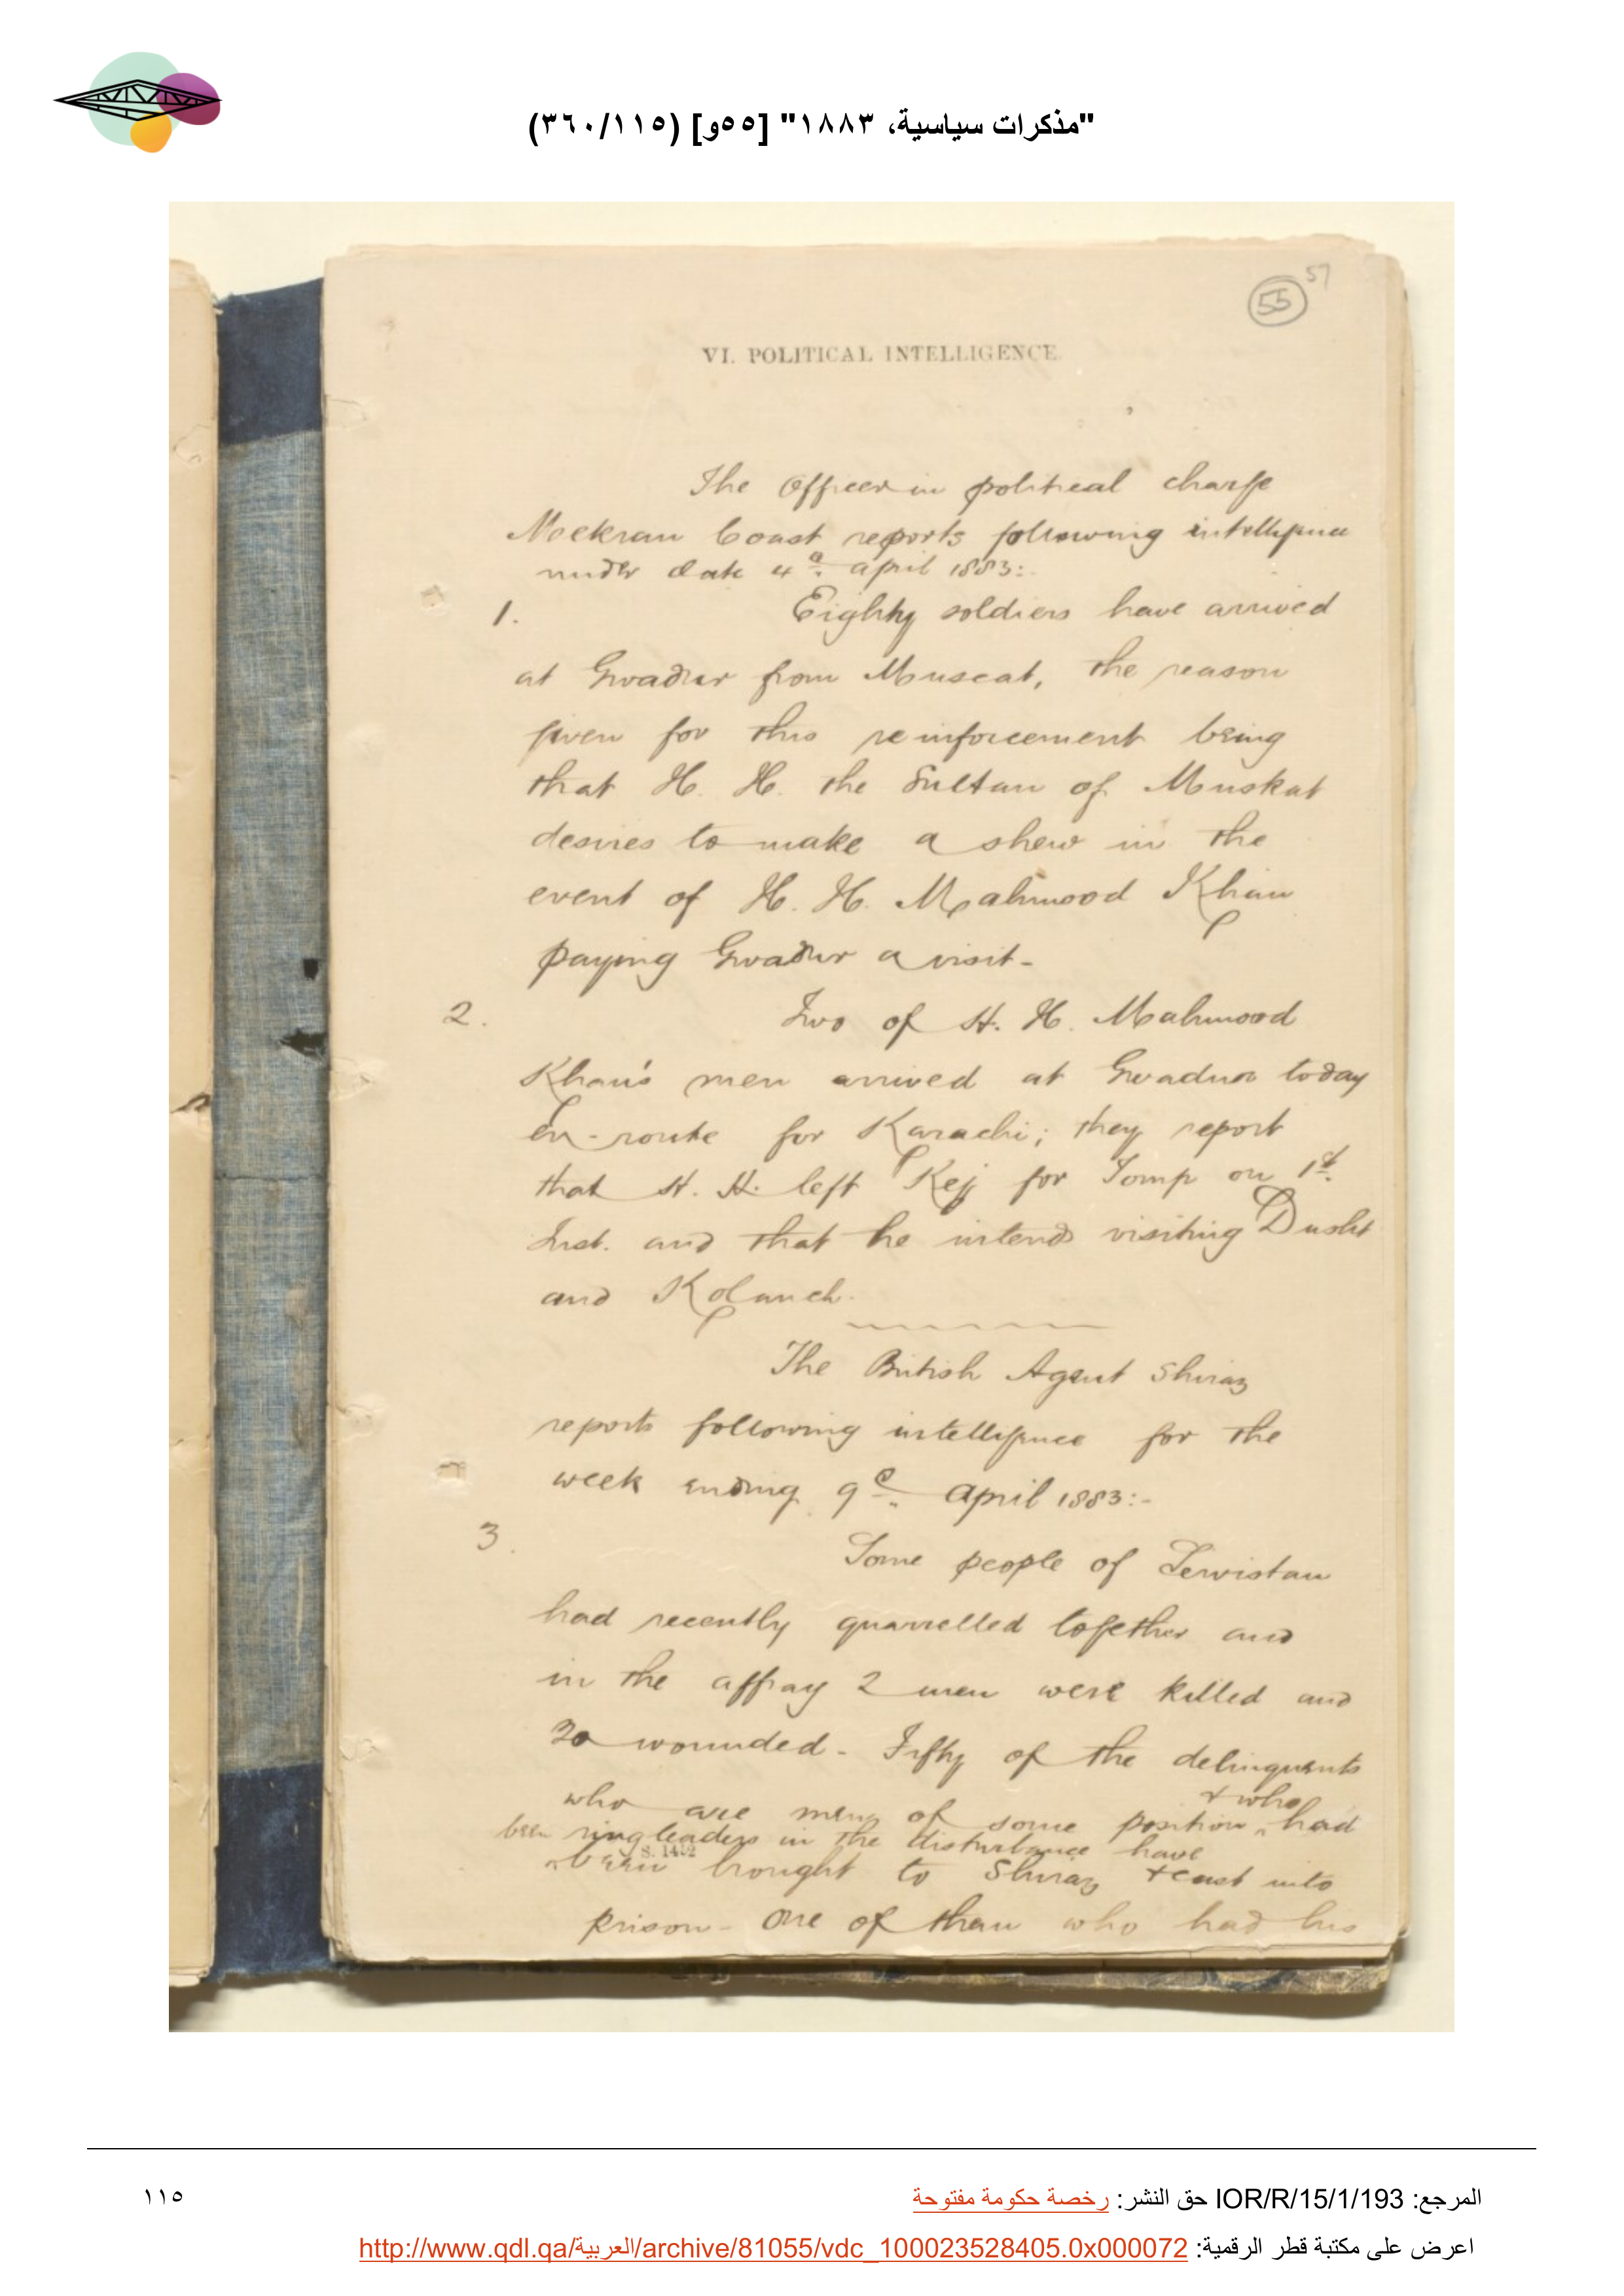 "مذكرات سياسية، ١٨٨٣" [٥٥و] (٣٦٠/١١٥)
57
55
VI. POLITICAL INTELLIGENCE.
The Officer in political charge
Mekran Coast reports following intelligence
under date 4th. april 1883:-
1. Eighty soldiers have arrived
at Gwadur from Muscat, the reason
given for this reinforcement being
that H. H. the Sultan of Muskat
desires to make a shew in the
event of H. H. Mahmood Khan
paying Gwadur a visit-
2. Two of H. H. Mahmood
Khan's men arrived at Gwadur today
en-route for Karachi; they report
that H. H. left Kej for Tomp on 1st.
Inst. and that he intends visiting Dusht
and Kolanch.
The British Agent Shiraz
reports following intelligence for the
week ending 9th. April 1883:-
3. Some people of
had recently quarrelled together and
in the affray 2 men were killed and
30 wounded- Fifty of the delinquents
who are men of some position & who had
been ringleaders in the disturbance have
S. 1452
been brought to Shiraz & cast into
prison- One of them who had his
المرجع: IOR/R/15/1/193 حق النشر: رخصة حكومة مفتوحة
١١٥
اعرض على مكتبة قطر الرقمية: http://www.qdl.qa/العربية/archive/81055/vdc_100023528405.0x000072